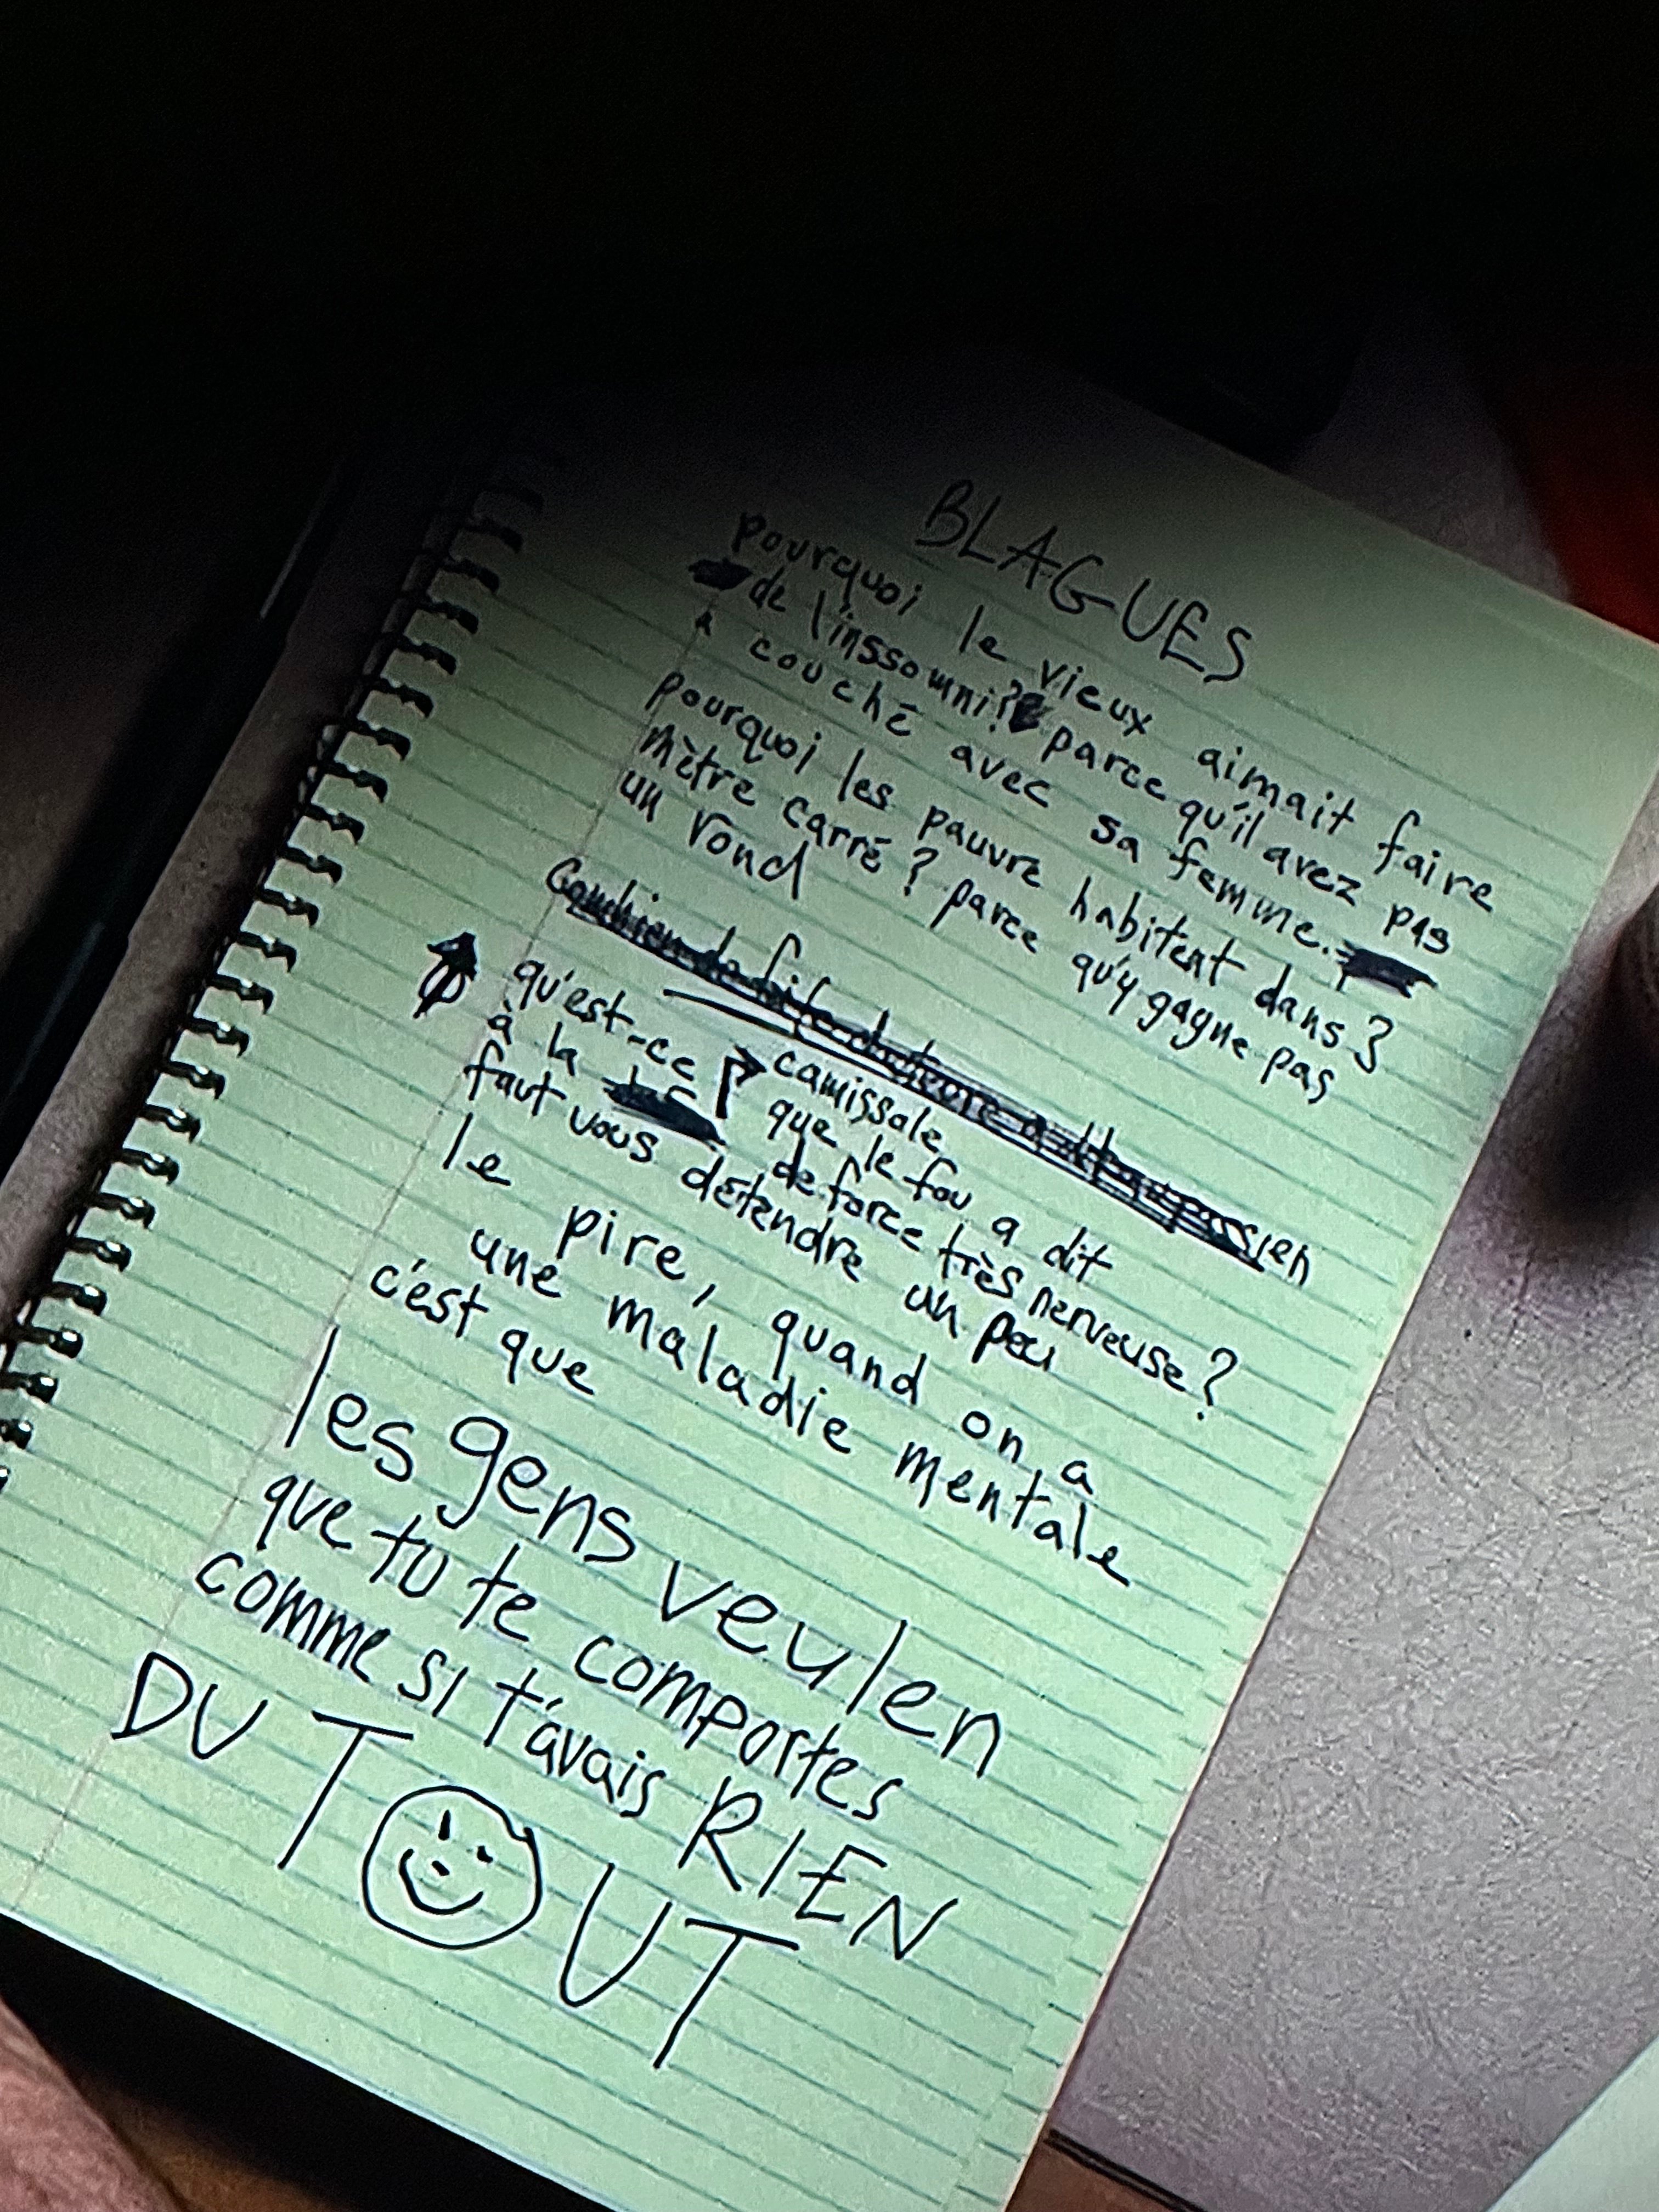 BLAGUES
pourquoi le vieux aimait faire
de l'inssomni? parce qu'il avez pas
couché avec sa femme.
pourquoi les pauvre habitent dans 3
mètre carré? parce qu'y gagne pas
un rond
Combien de
qu'est-ce que le fou a dit
à la camissole de force très nerveuse?
faut vous détendre un peu
le pire, quand on a
une maladie mentale
c'est que
les gens veulen
que tu te comportes
comme si t'avais RIEN
DU TOUT